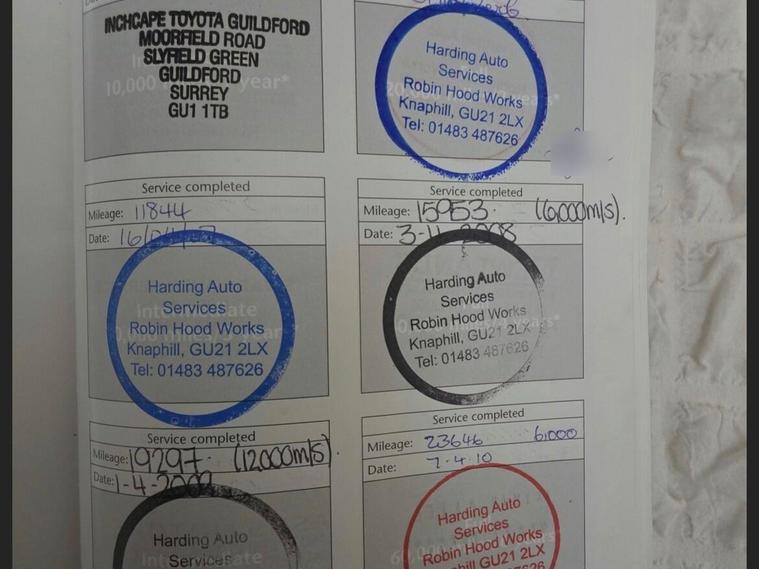 INCHCAPE TOYOTA GUILDFORD
MOORFIELD ROAD
SLYFIELD GREEN
GUILDFORD
SURREY
GU1 1TB
10,000 year*
Harding Auto
Services
Robin Hood Works
Knaphill, GU21 2LX
Tel: 01483 487626
Service completed
Mileage: 11844
Date:
Harding Auto
Services
Intermediate
Robin Hood Works
Knaphill, GU21 2LX
Tel: 01483 487626
Service completed
Mileage: 15953. (6,000m/s).
Date: 3-11-2008
Harding Auto
Services
Robin Hood Works
Knaphill, GU21 2LX
Tel: 01483 487626
Service completed
Mileage: 19297. (12000m/s).
Date: 1-4-2009
Harding Auto
Services
Intermediate
Service completed
Mileage: 23646 6,000
Date: 7.4.10
Harding Auto
Services
Robin Hood Works
Knaphill GU21 2LX